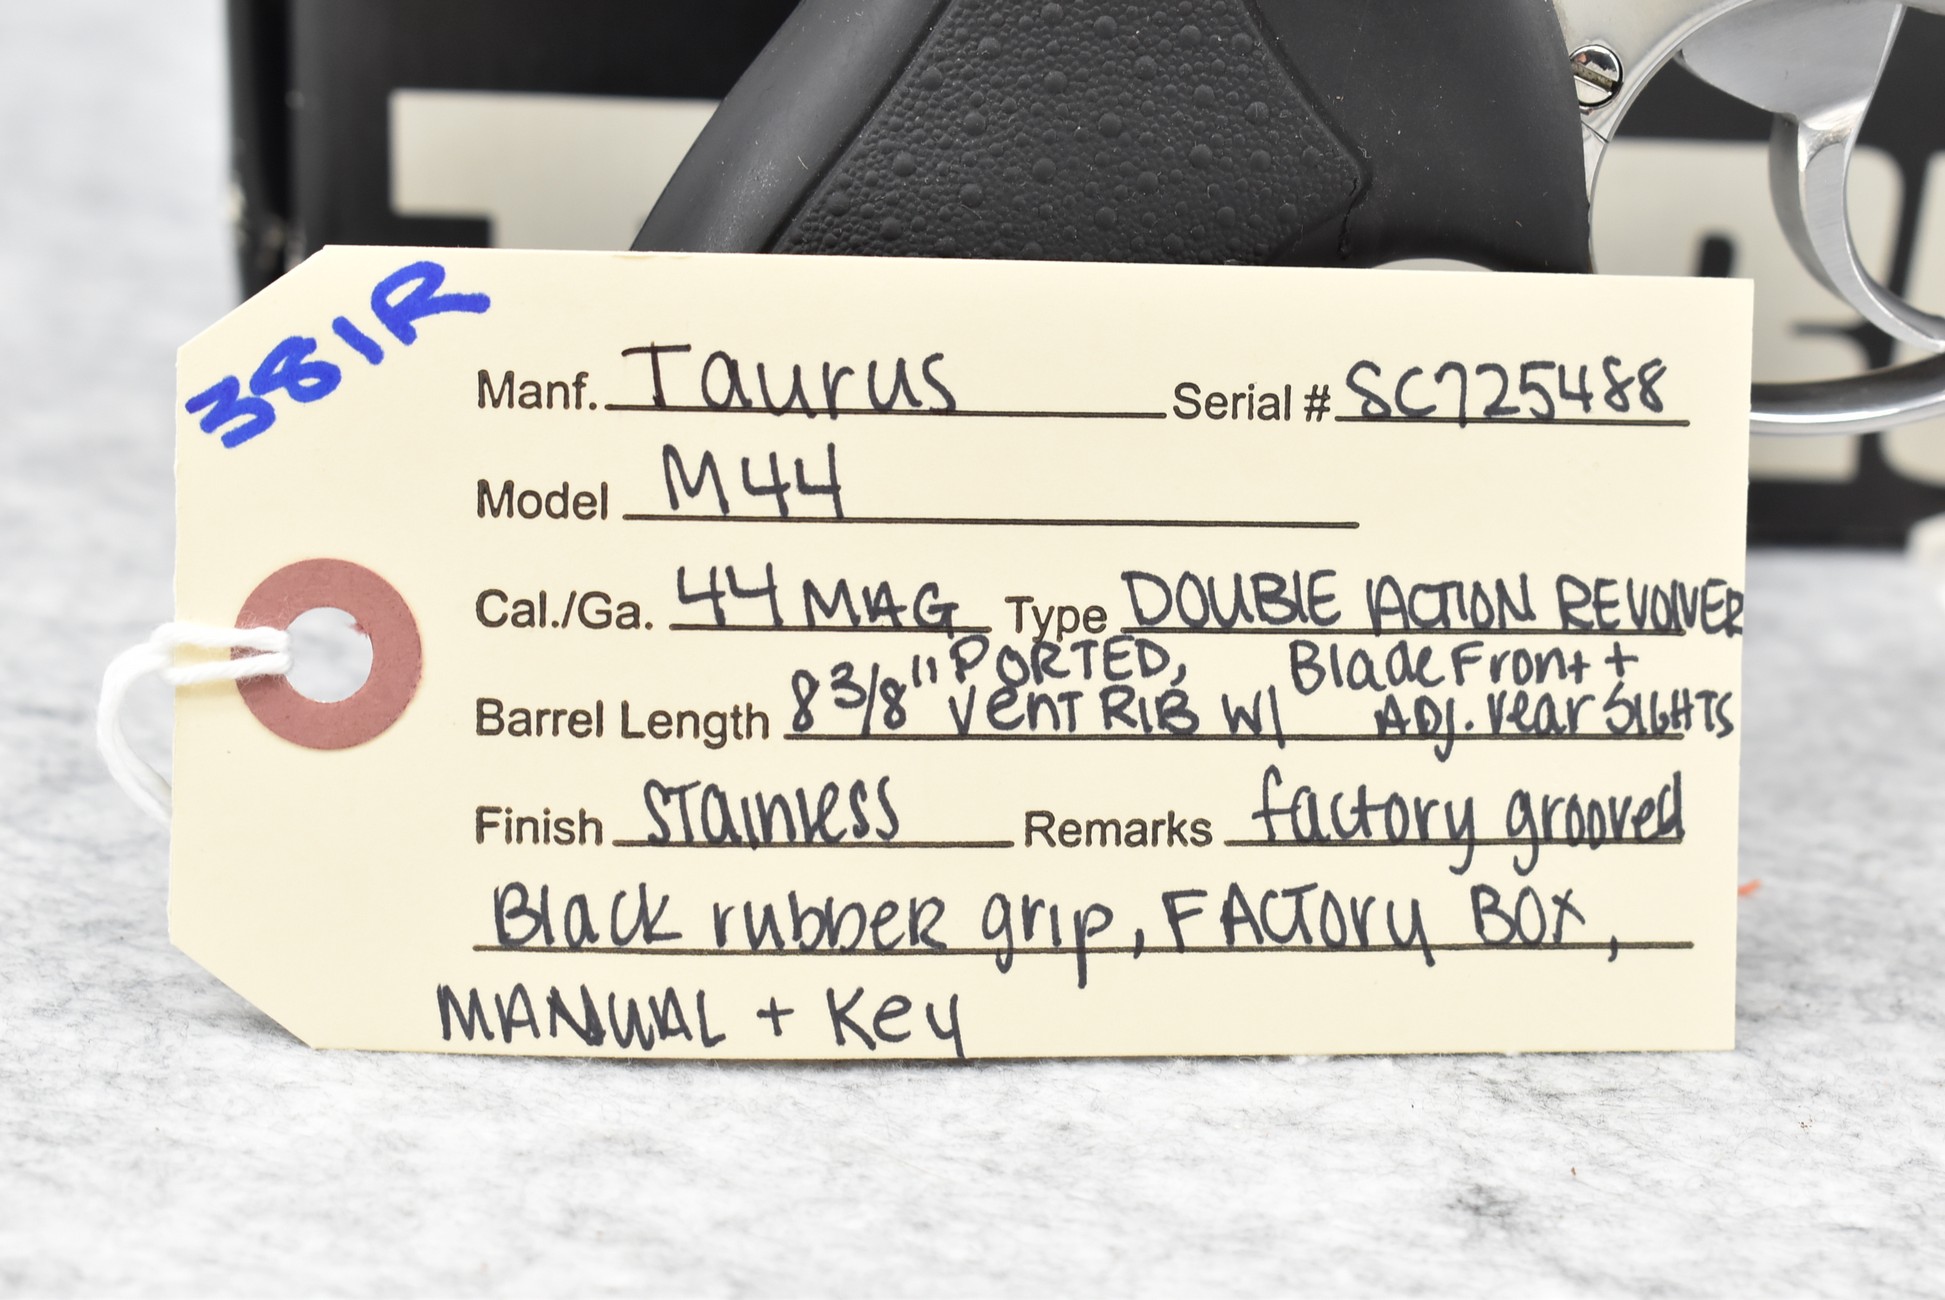 381R
Manf. Taurus Serial # SC725488
Model M44
Cal./Ga. 44 MAG Type DOUBLE ACTION REVOLVER
Barrel Length 8 3/8" PORTED, VENT RIB W/ Blade Front + ADJ. rear SIGHTS
Finish Stainless Remarks factory grooved
Black rubber grip, FACTORY BOX,
MANUAL + Key